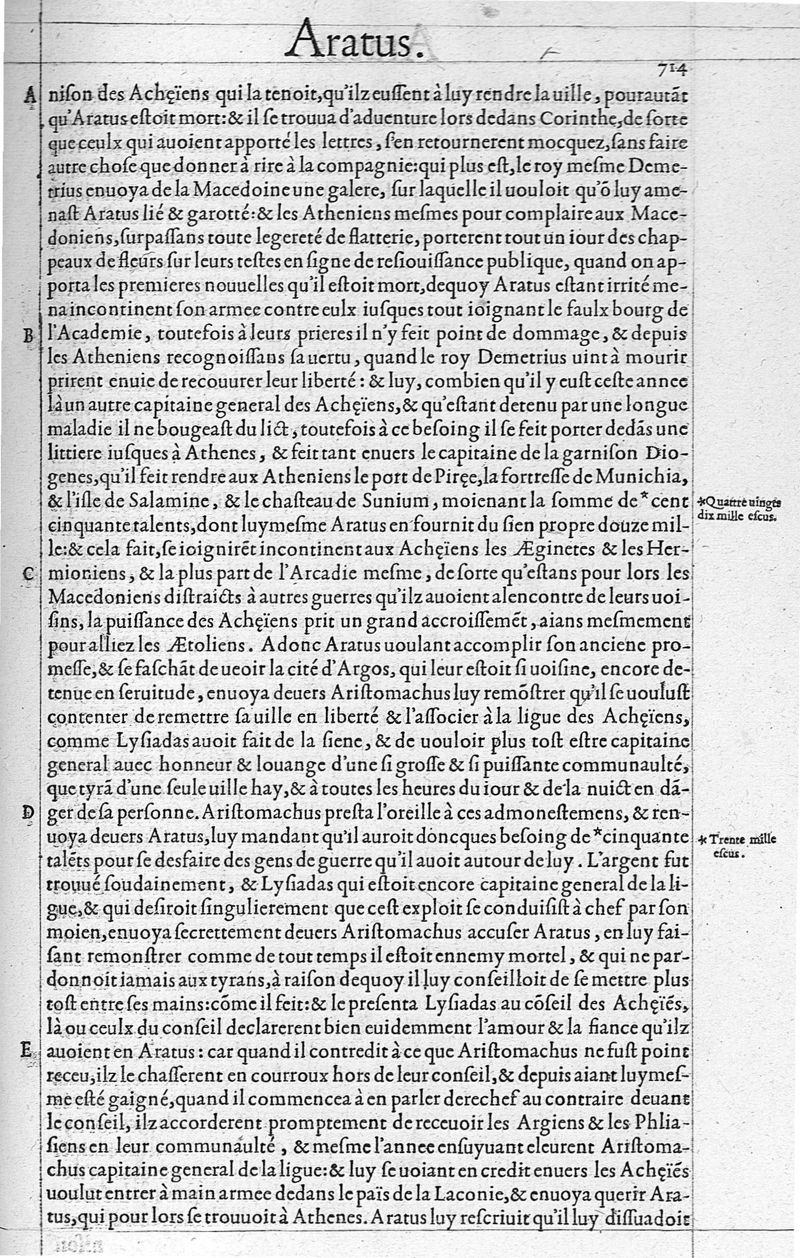 Aratus.
714
A niſon des Achęïens qui la tenoit, qu'ilz euſſent à luy rendre la uille, pourautāt
qu'Aratus eſtoit mort: & il ſe trouua d'aduenture lors dedans Corinthe, de ſorte
que ceulx qui auoient apporté les lettres, s'en retournerent mocquez, ſans faire
autre choſe que donner à rire à la compagnie: qui plus eſt, le roy meſme Deme-
trius enuoya de la Macedoine une galere, ſur laquelle il uouloit qu'ō luy ame-
naſt Aratus lié & garotté: & les Atheniens meſmes pour complaire aux Mace-
doniens, ſurpaſſans toute legereté de flatterie, porterent tout un iour des chap-
peaux de fleurs ſur leurs teſtes en ſigne de reſiouiſſance publique, quand on ap-
porta les premieres nouuelles qu'il eſtoit mort, dequoy Aratus eſtant irrité me-
na incontinent ſon armee contre eulx iuſques tout ioignant le faulx bourg de
B l'Academie, toutefois à leurs prieres il n'y feit point de dommage, & depuis
les Atheniens recognoiſſans ſa uertu, quand le roy Demetrius uint à mourir
prirent enuie de recouurer leur liberté: & luy, combien qu'il y euſt ceſte annee
là un autre capitaine general des Achęïens, & qu'eſtant detenu par une longue
maladie il ne bougeaſt du lict, toutefois à ce beſoing il ſe feit porter dedās une
littiere iuſques à Athenes, & feit tant enuers le capitaine de la garniſon Dio-
genes, qu'il feit rendre aux Atheniens le port de Piręe, la fortreſſe de Munichia,
& l'iſle de Salamine, & le chaſteau de Sunium, moienant la ſomme de *cent
*Quattre uingts
dix mille eſcus.
cinquante talents, dont luymeſme Aratus en fournit du ſien propre douze mil-
le: & cela fait, ſe ioignirēt incontinent aux Achęïens les Æginetes & les Her-
C mioniens, & la plus part de l'Arcadie meſme, de ſorte qu'eſtans pour lors les
Macedoniens diſtraicts à autres guerres qu'ilz auoient alencontre de leurs uoi-
ſins, la puiſſance des Achęïens prit un grand accroiſſemēt, aians meſmement
pour alliez les Ætoliens. Adonc Aratus uoulant accomplir ſon anciene pro-
meſſe, & ſe faſchāt de ueoir la cité d'Argos, qui leur eſtoit ſi uoiſine, encore de-
tenue en ſeruitude, enuoya deuers Ariſtomachus luy remōſtrer qu'il ſe uouluſt
contenter de remettre ſa uille en liberté & l'aſſocier à la ligue des Achęïens,
comme Lyſiadas auoit fait de la ſiene, & de uouloir plus toſt eſtre capitaine
general auec honneur & louange d'une ſi groſſe & ſi puiſſante communaulté,
que tyrā d'une ſeule uille hay, & à toutes les heures du iour & de la nuict en dā-
D ger de ſa perſonne. Ariſtomachus preſta l'oreille à ces admoneſtemens, & ren-
uoya deuers Aratus, luy mandant qu'il auroit doncques beſoing de *cinquante
*Trente mille
eſcus.
talēts pour ſe desfaire des gens de guerre qu'il auoit autour de luy. L'argent fut
trouué ſoudainement, & Lyſiadas qui eſtoit encore capitaine general de la li-
gue, & qui deſiroit ſingulierement que ceſt exploit ſe conduiſiſt à chef par ſon
moien, enuoya ſecrettement deuers Ariſtomachus accuſer Aratus, en luy fai-
ſant remonſtrer comme de tout temps il eſtoit ennemy mortel, & qui ne par-
donnoit iamais aux tyrans, à raiſon dequoy il luy conſeilloit de ſe mettre plus
toſt entre ſes mains: cōme il feit: & le preſenta Lyſiadas au cōſeil des Achęïēs,
là ou ceulx du conſeil declarerent bien euidemment l'amour & la fiance qu'ilz
E auoient en Aratus: car quand il contredit à ce que Ariſtomachus ne fuſt point
receu, ilz le chaſſerent en courroux hors de leur conſeil, & depuis aiant luymeſ-
me eſté gaigné, quand il commencea à en parler derechef au contraire deuant
le conſeil, ilz accorderent promptement de receuoir les Argiens & les Phlia-
ſiens en leur communaulté, & meſme l'annee enſuyuant eleurent Ariſtoma-
chus capitaine general de la ligue: & luy ſe uoiant en credit enuers les Achęïēs
uoulut entrer à main armee dedans le païs de la Laconie, & enuoya querir Ara-
tus, qui pour lors ſe trouuoit à Athenes. Aratus luy reſcriuit qu'il luy diſſuadoit